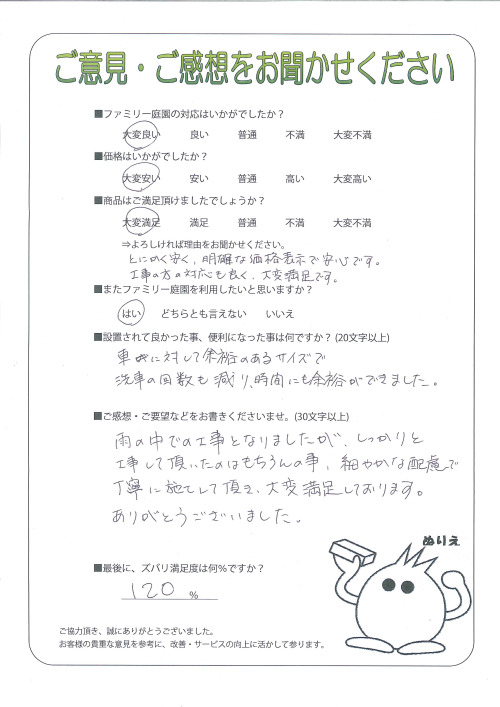 ご意見・ご感想をお聞かせください
■ファミリー庭園の対応はいかがでしたか？
大変良い 良い 普通 不満 大変不満
■価格はいかがでしたか？
大変安い 安い 普通 高い 大変高い
■商品はご満足頂けましたでしょうか？
大変満足 満足 普通 不満 大変不満
⇒よろしければ理由をお聞かせください。
とにかく安く、明確な価格表示で安心です。
工事の方の対応も良く、大変満足です。
■またファミリー庭園を利用したいと思いますか？
はい どちらとも言えない いいえ
■設置されて良かった事、便利になった事は何ですか？(20文字以上)
車に対して余裕のあるサイズで
洗車の回数も減り、時間にも余裕ができました。
■ご感想・ご要望などをお書きくださいませ。(30文字以上)
雨の中での工事となりましたが、しっかりと
工事して頂いたのはもちろんの事、細やかな配慮で
丁寧に施工して頂き、大変満足しております。
ありがとうございました。
ぬりえ
■最後に、ズバリ満足度は何％ですか？
120 ％
ご協力頂き、誠にありがとうございました。
お客様の貴重な意見を参考に、改善・サービスの向上に活かして参ります。